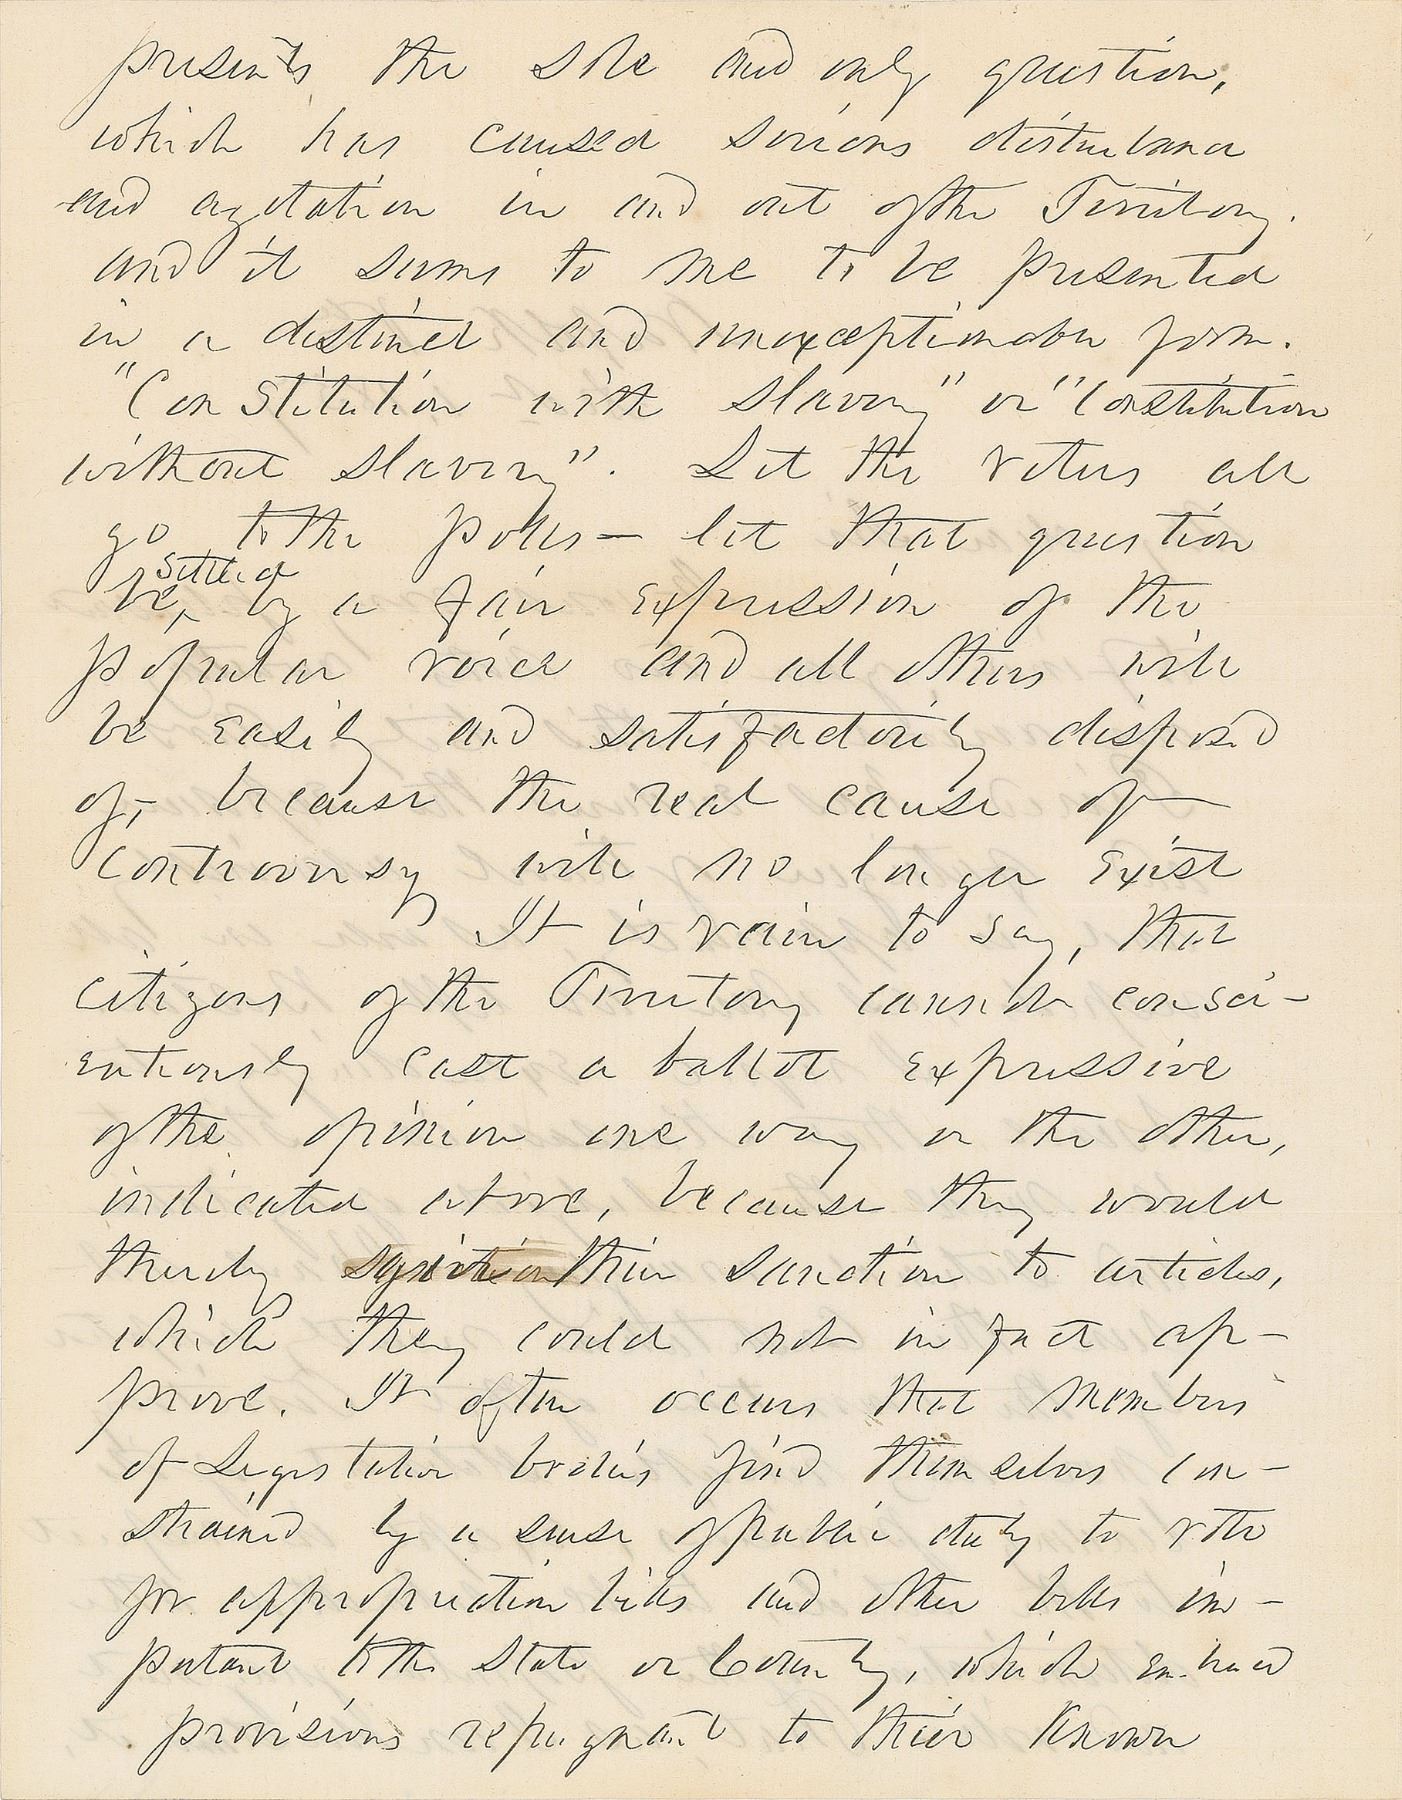 presents the sole and only question,
which has caused serious disturbance
and agitation in and out of the Territory.
and it seems to me to be presented
in a distinct and unexceptionable form.
"Constitution with Slavery" or "Constitution
without Slavery". Let the voters all
go to the polls — let that question
settled
be, by a fair expression of the
popular voice and all others will
be easily and satisfactorily disposed
of, because the real cause of
controversy will no longer exist
It is vain to say, that
citizens of the Territory cannot consci-
entiously cast a ballot expressive
of the opinion one way or the other,
indicated above, because they would
thereby their sanction to articles,
which they could not in fact ap-
prove. It often occurs that members
of Legislative bodies find themselves con-
strained by a sense of public duty to vote
for appropriation bills and other bills im-
portant to the State or Country, which embraced
provisions repugnant to their known